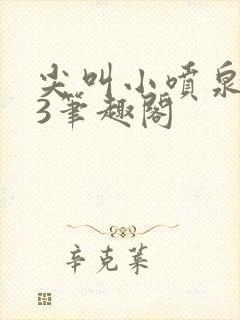 尖叫小喷泉
3笔趣阁
辛克莱